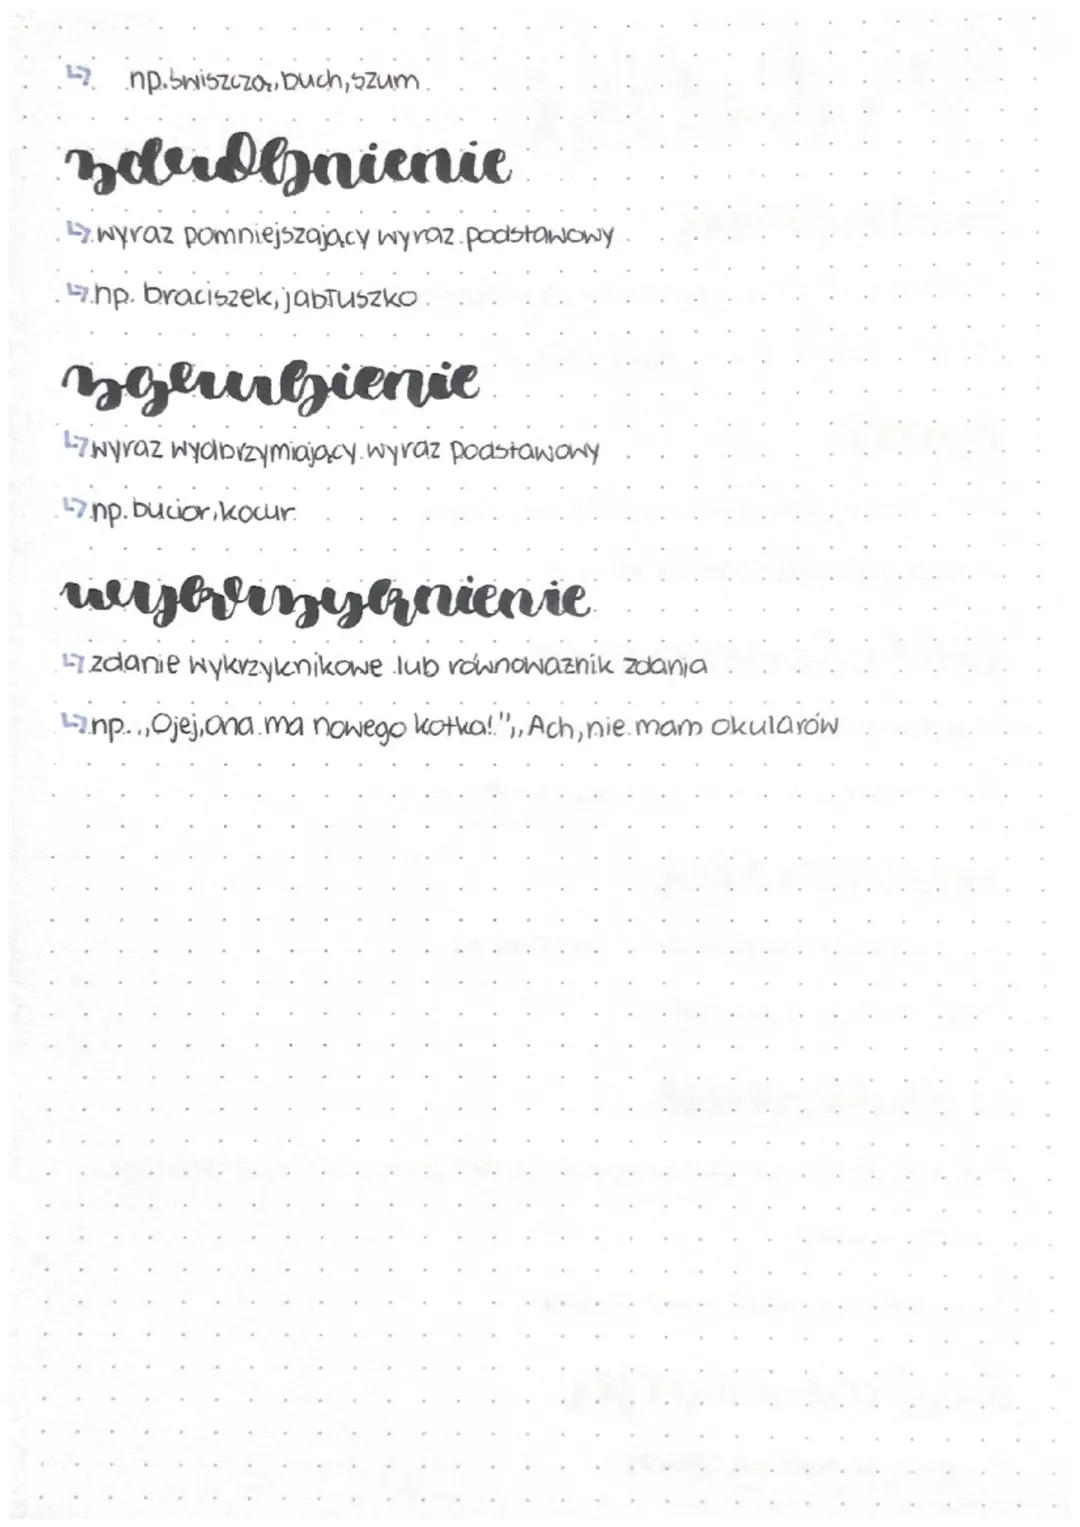 ↳ np. świszczą, buch, szum
zdrobnienie
↳ wyraz pomniejszający wyraz podstawowy
↳ np. braciszek, jabłuszko
zgrubienie
↳ wyraz wyolbrzymiający wyraz podstawowy
↳ np. bucior, kocur
wykrzyknienie
↳ zdanie wykrzyknikowe lub równoważnik zdania
↳ np. ,,Ojej, ona ma nowego kotka!",,, Ach, nie mam okularów